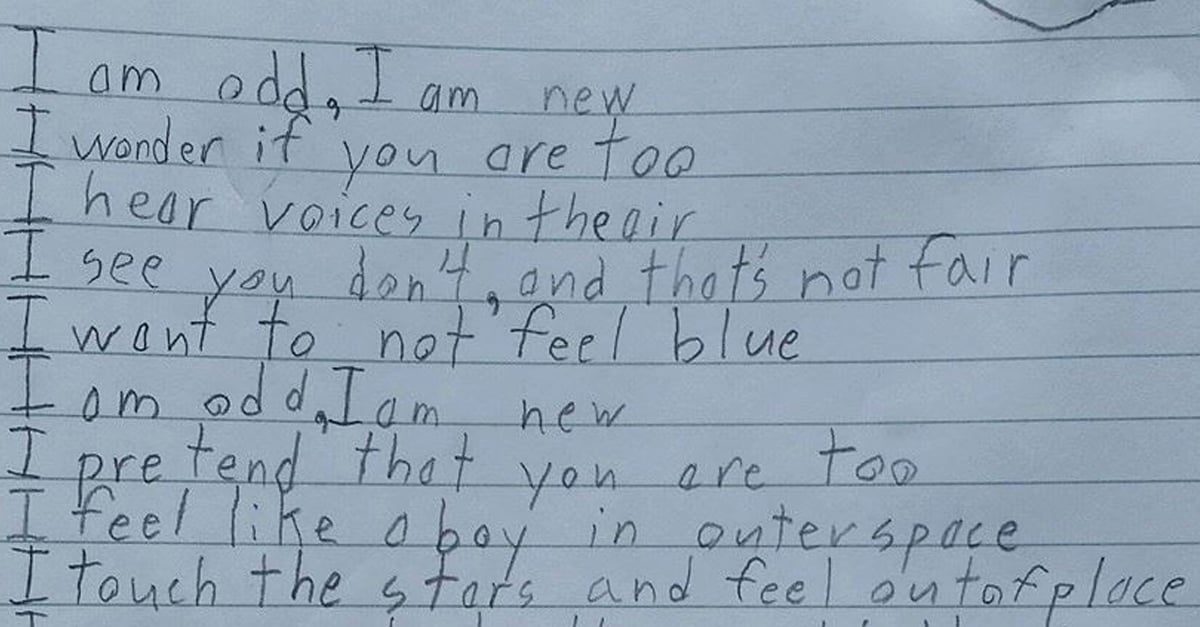 I am odd, I am new
I wonder if you are too
I hear voices in the air
I see you don't, and that's not fair
I want to not feel blue
I am odd, I am new
I pretend that you are too
I feel like a boy in outer space
I touch the stars and feel out of place